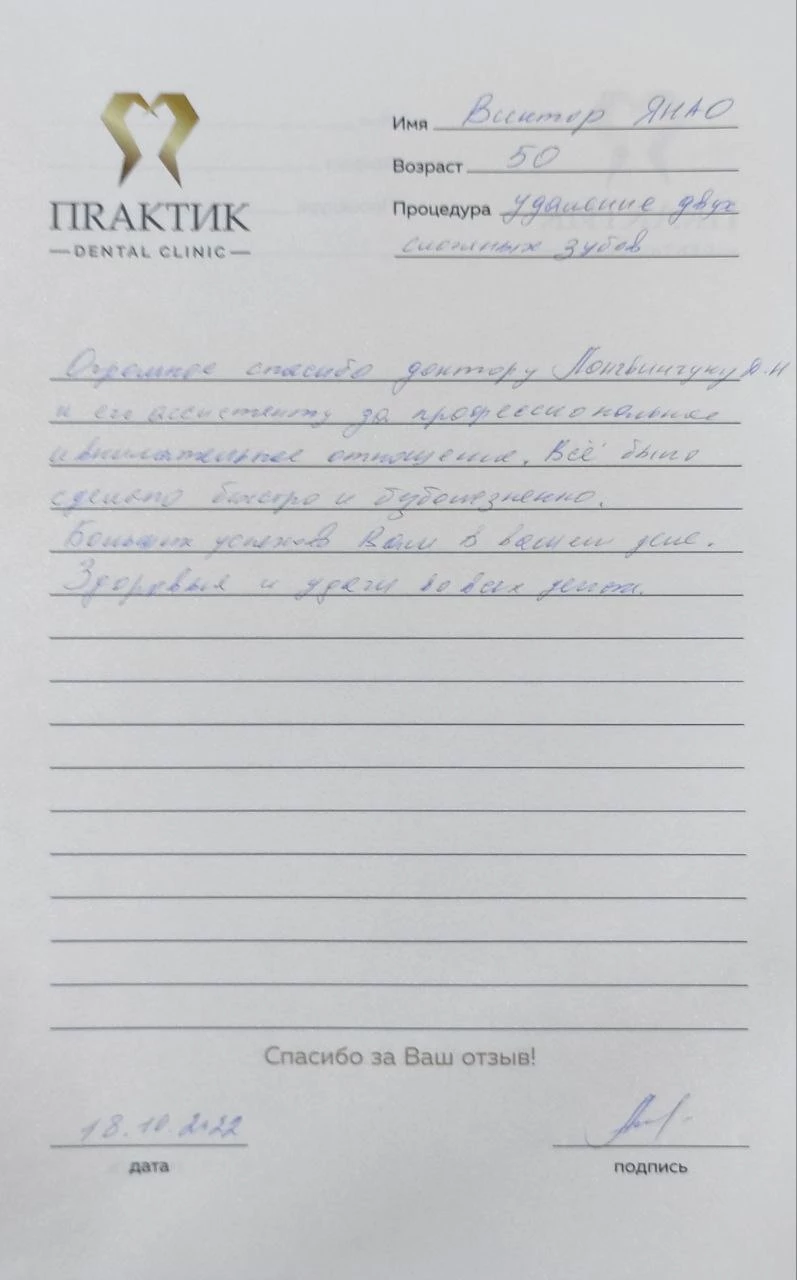 ПRАКТИК
DENTAL CLINIC
Имя Виктор ЯНАО
Возраст 50
Процедура Удаление двух
сложных зубов
Огромное спасибо доктору
и его ассистенту за профессиональное
и внимательное отношение. Всё было
сделано быстро и безболезненно.
Больших успехов Вам в вашем деле.
Здоровья и удачи во всех делах.
Спасибо за Ваш отзыв!
18.10.2022
дата
подпись